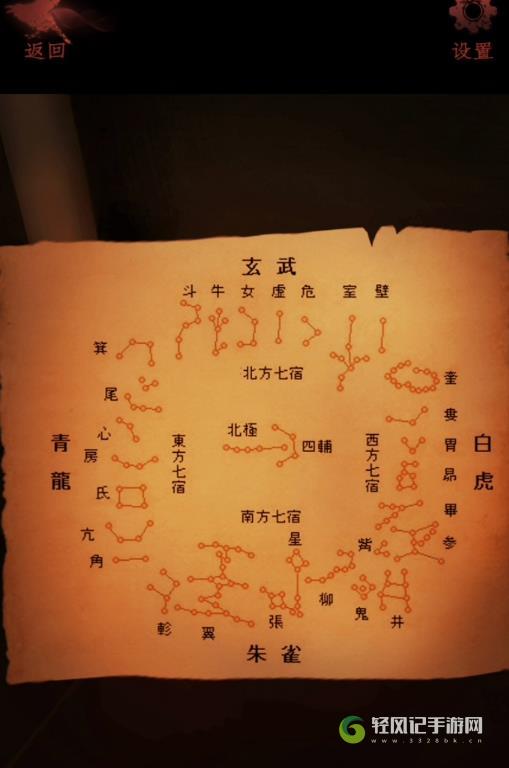 返回
设置
玄武
斗 牛 女 虛 危 室 壁
箕
北方七宿
尾
奎
心
北極
婁
青龍
房
東方七宿
四輔
西方七宿
胃
白虎
昴
氐
南方七宿
畢
亢
星
觜
参
角
柳
鬼
井
張
翼
朱雀
轻风记手游网
www.3328bk.cn